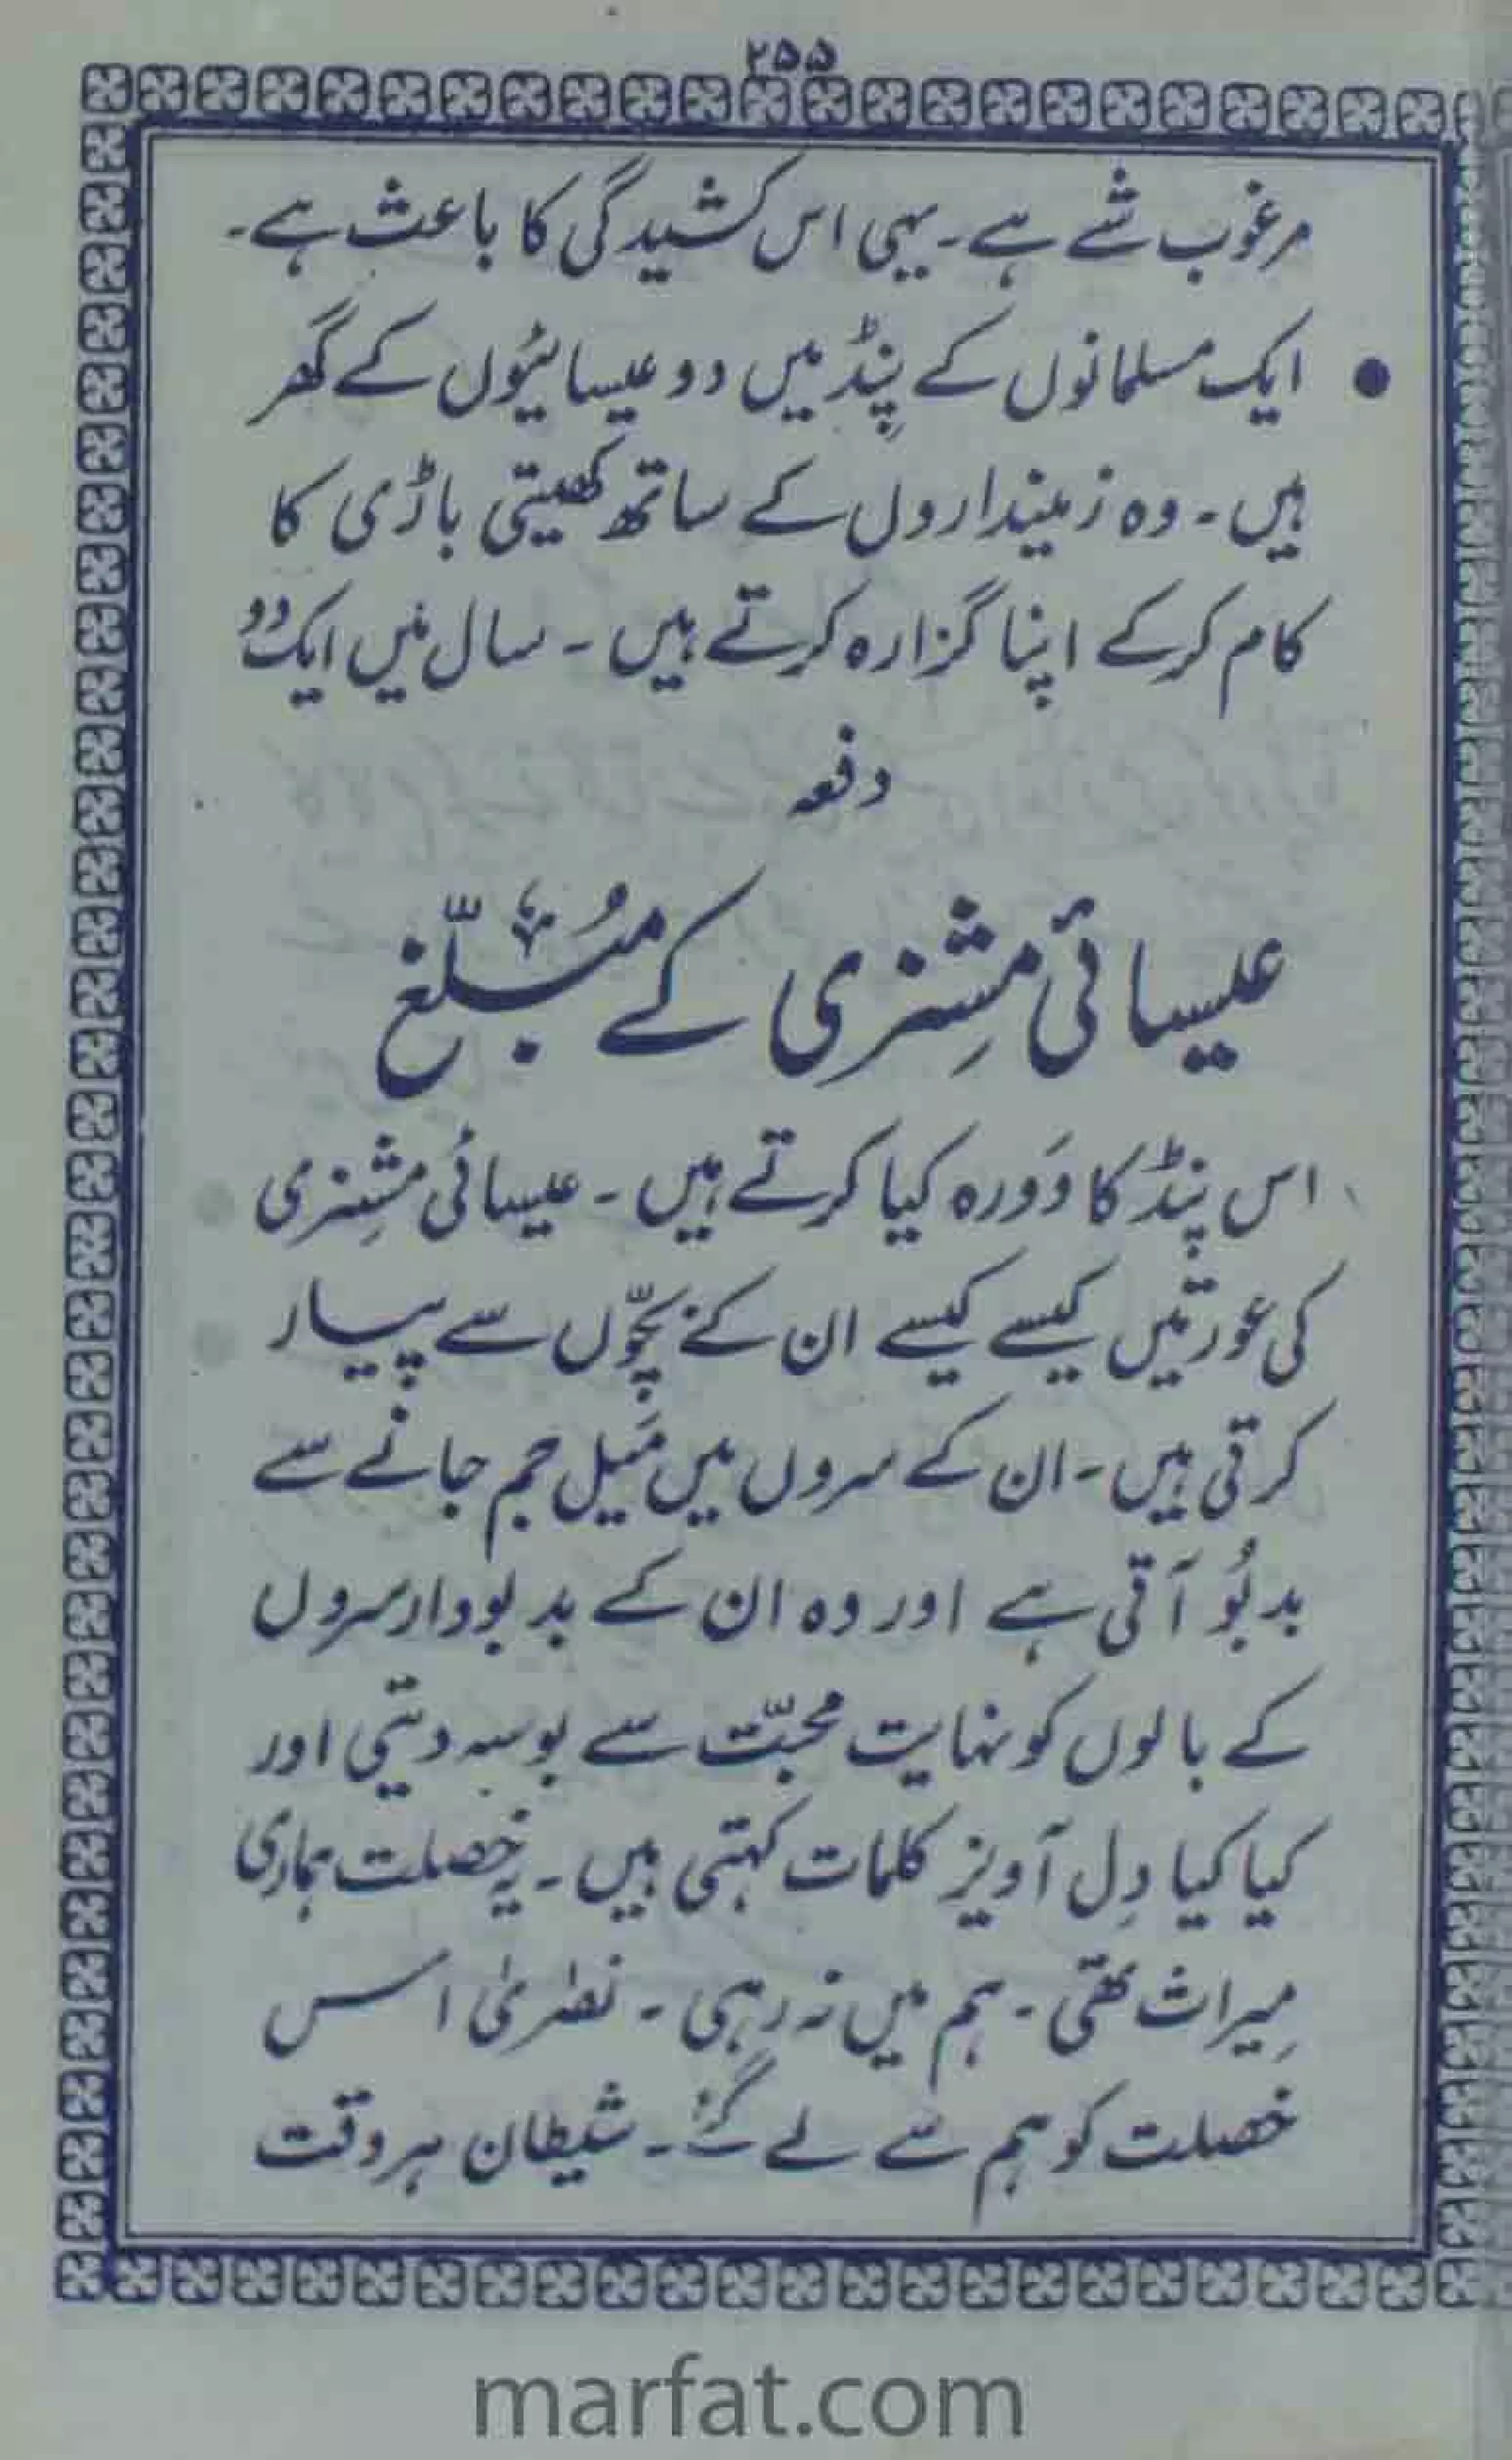 ۲۵۵
مرغوب شے ہے۔ یہی اس کشیدگی کا باعث ہے۔
● ایک مسلمانوں کے پِنڈ میں دو عیسائیوں کے گھر
ہیں۔ وہ زمینداروں کے ساتھ کھیتی باڑی کا
کام کر کے اپنا گزارہ کرتے ہیں۔ سال میں ایک دو
دفعہ
عیسائی مشِنری کے مُبلّغ
اس پنڈ کا دَورہ کیا کرتے ہیں۔ عیسائی مشِنری
کی عورتیں کیسے کیسے ان کے بچّوں سے پیار
کرتی ہیں۔ ان کے سروں میں مَیل جم جانے سے
بدبُو آتی ہے اور وہ ان کے بدبودار سروں
کے بالوں کو نہایت محبّت سے بوسہ دیتی اور
کیا کیا دِل آویز کلمات کہتی ہیں۔ یہ خصلت ہماری
مِیراث تھی۔ ہم میں نہ رہی۔ نصٰریٰ اس
خصلت کو ہم سے لے گئے۔ شیطان ہر وقت
marfat.com